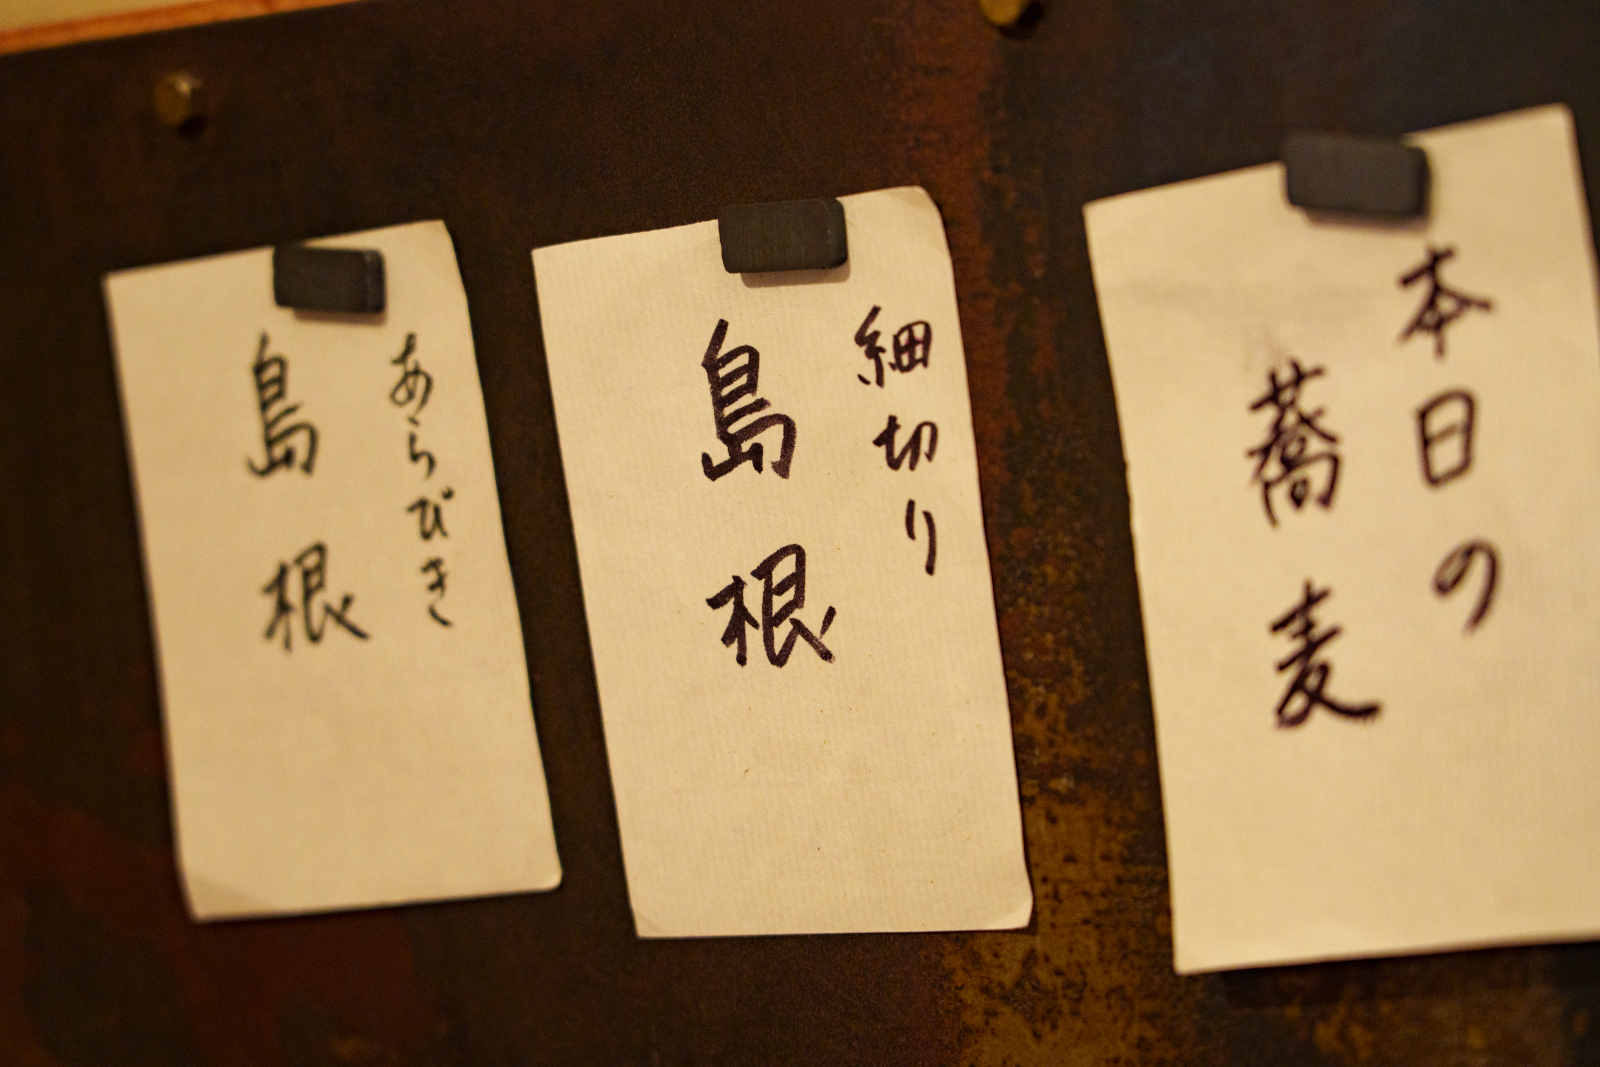 本日の
蕎麦
細切り
島根
あらびき
島根